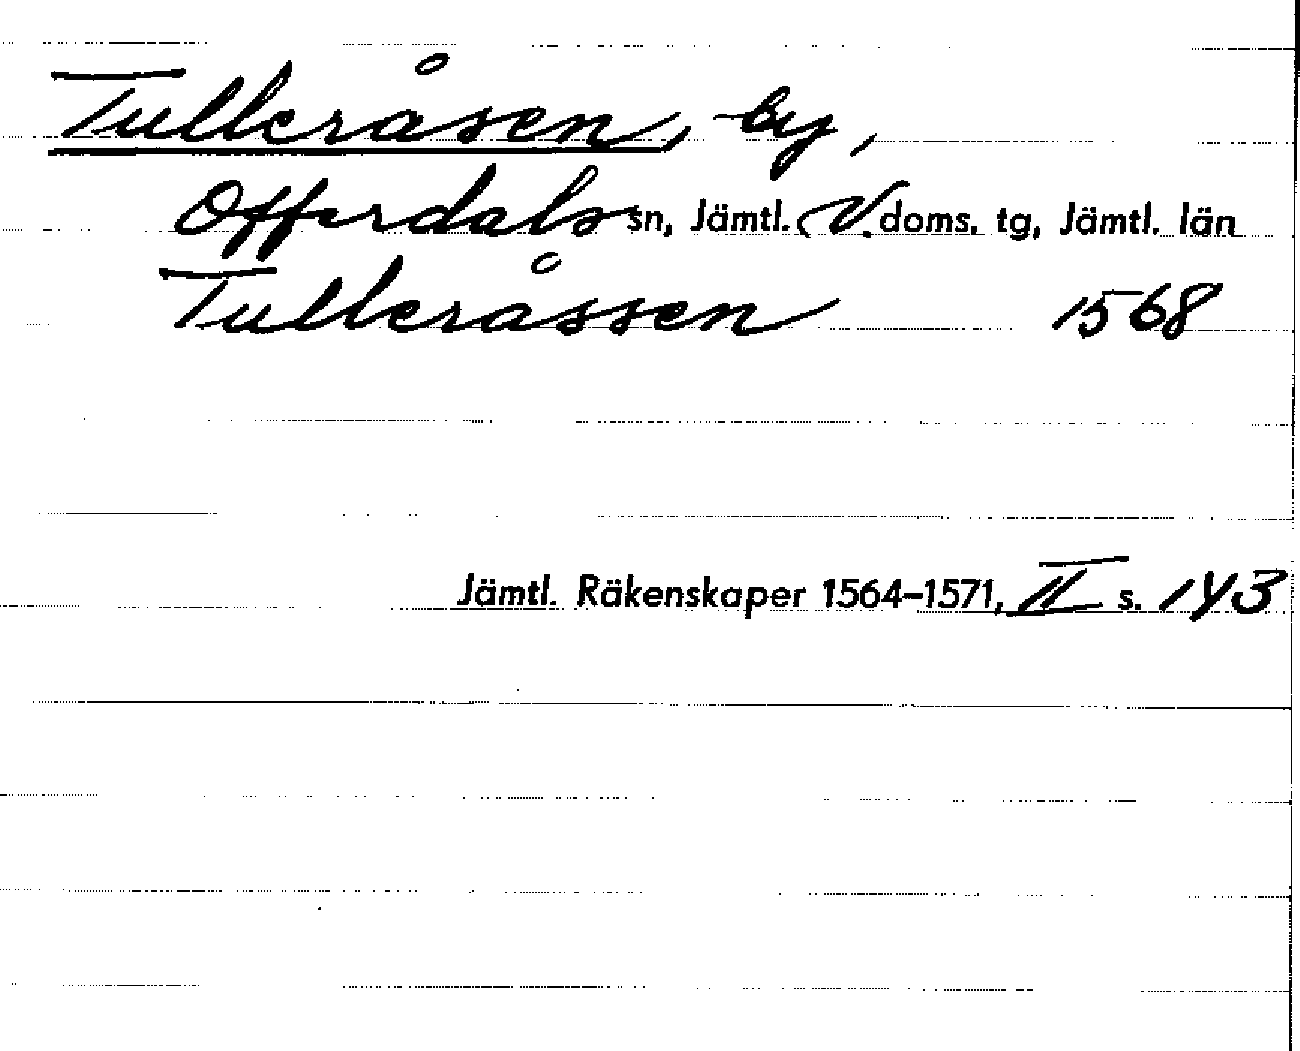 Tulleråsen, by,
Offerdals sn, Jämtl. V. doms. tg, Jämtl. län
Tulleråssen 1568
Jämtl. Räkenskaper 1564–1571, II s. 143